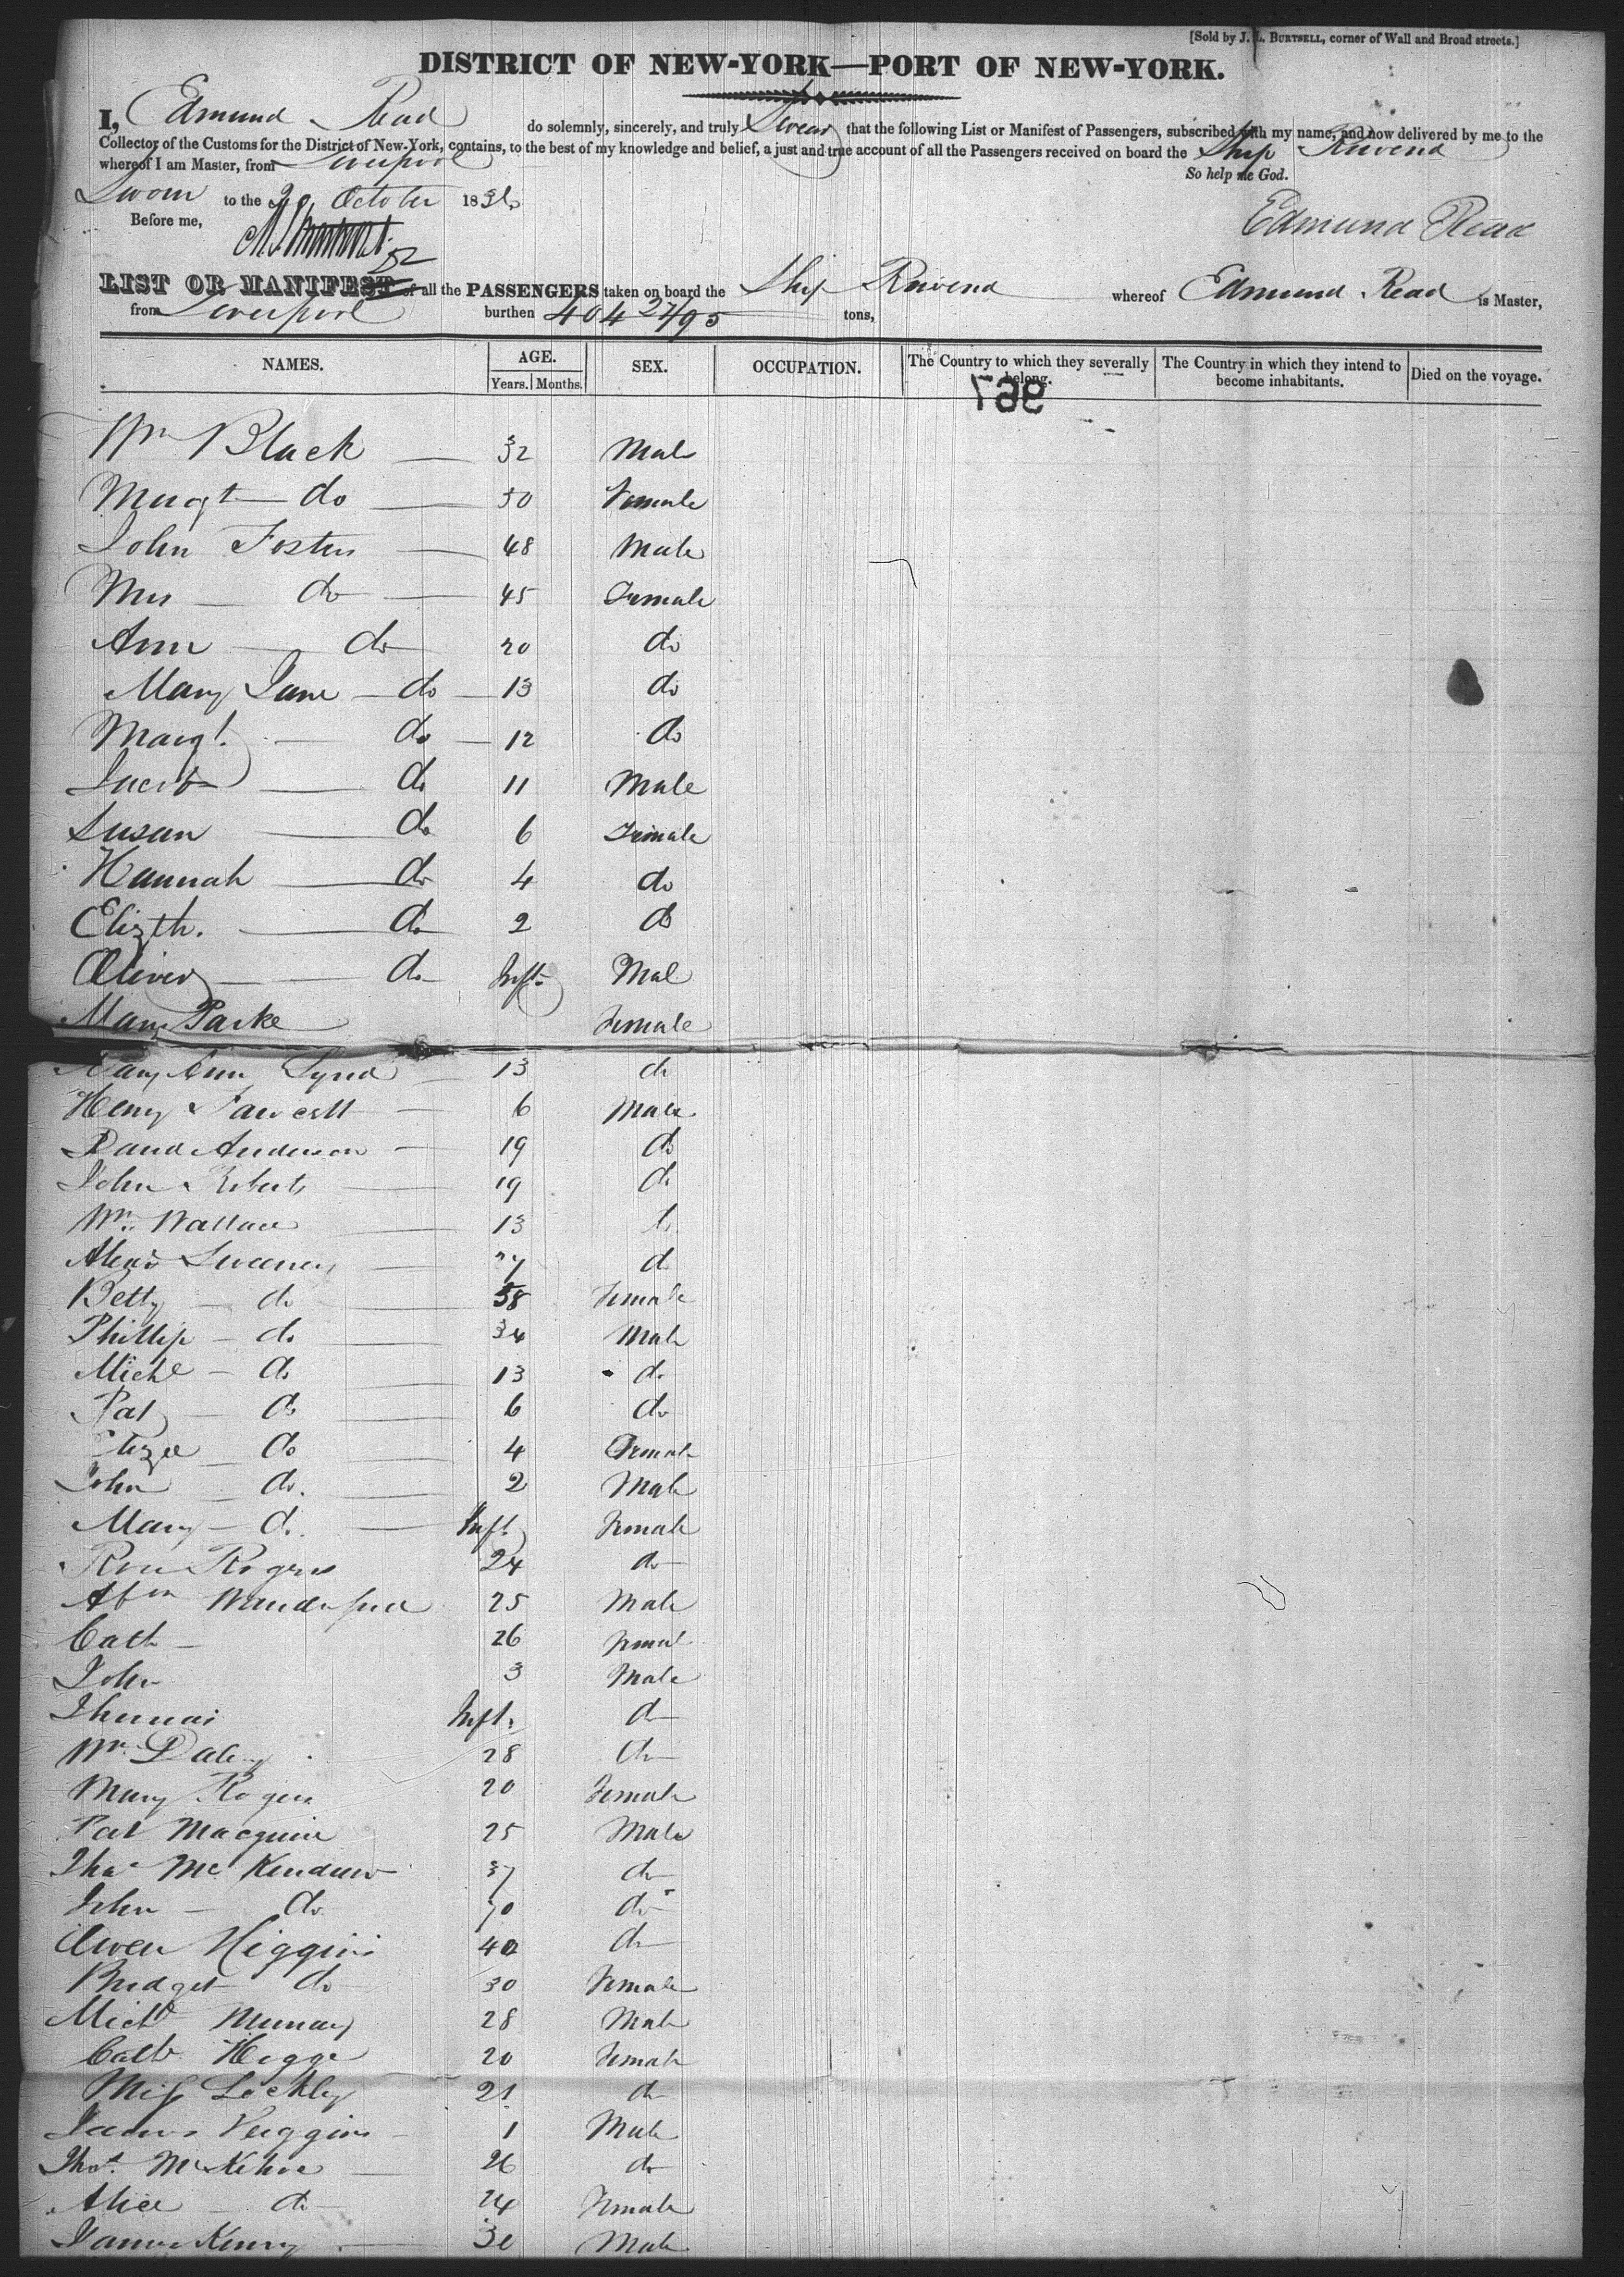 [Sold by J. L. BURTSELL, corner of Wall and Broad streets.]
DISTRICT OF NEW-YORK—PORT OF NEW-YORK.
I, Edmund Read do solemnly, sincerely, and truly Swear that the following List or Manifest of Passengers, subscribed with my name, and now delivered by me to the
Collector of the Customs for the District of New-York, contains, to the best of my knowledge and belief, a just and true account of all the Passengers received on board the Ship
whereof I am Master, from Liverpool
So help me God.
Sworn to the October 18
Before me,
Edmund Read
LIST OR MANIFEST of all the PASSENGERS taken on board the Ship whereof Edmund Read is Master,
from Liverpool burthen 404 27/95 tons,
NAMES. AGE. SEX. OCCUPATION. The Country to which they severally belong. The Country in which they intend to become inhabitants. Died on the voyage.
Years. Months.
Wm Black 32 Male
Margt do 30 Female
John Foster 48 Male
Mrs do 45 Female
Ann do 20 do
Mary Jane do 13 do
Margt. do 12 do
Jacob do 11 Male
Susan do 6 Female
Hannah do 4 do
Elizth. do 2 do
Oliver do Inft. Mal
Mary Parke Female
Mary Ann 13 do
Henry Fawcett 6 Male
David Anderson 19 do
John Roberts 19 do
Wm. Wallace 13
Alexr Sweeney do
Betty do 38 Female
Phillip do 34 Male
Michl do 13 do
Pat do 6 do
do 4 Female
John do. 2 Male
Mary do. Inft. Female
Rogers 24 do
25 Male
Cath 26 Femal
John 3 Male
Thomas Inft. do
Wm Daley 28 do
Mary Rogers 20 Female
Pat Macguire 25 Male
Thos Mc Kendrew 37 do
John do do
Owen Higgins 40 do
Bridget do 30 Female
Michl Murray 28 Male
Cath 20 Female
Miss Lockley 21 do
James Higgins 1 Male
Thos. 26 do
Alice do 24 Female
James Kenny 30 Male